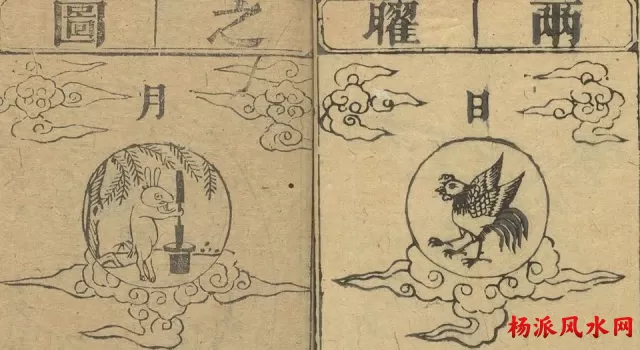 兩曜之圖
日
月
杨派风水网